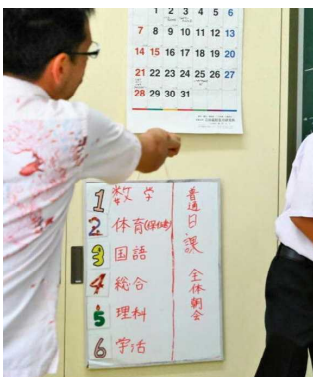 1 2 3 4 5 6
7 8 9 10 11 12 13
14 15 16 17 18 19 20
21 22 23 24 25 26 27
28 29 30 31
1 数学
2 体育(保健)
3 国語
4 総合
5 理科
6 学活
普通日課 全体朝会